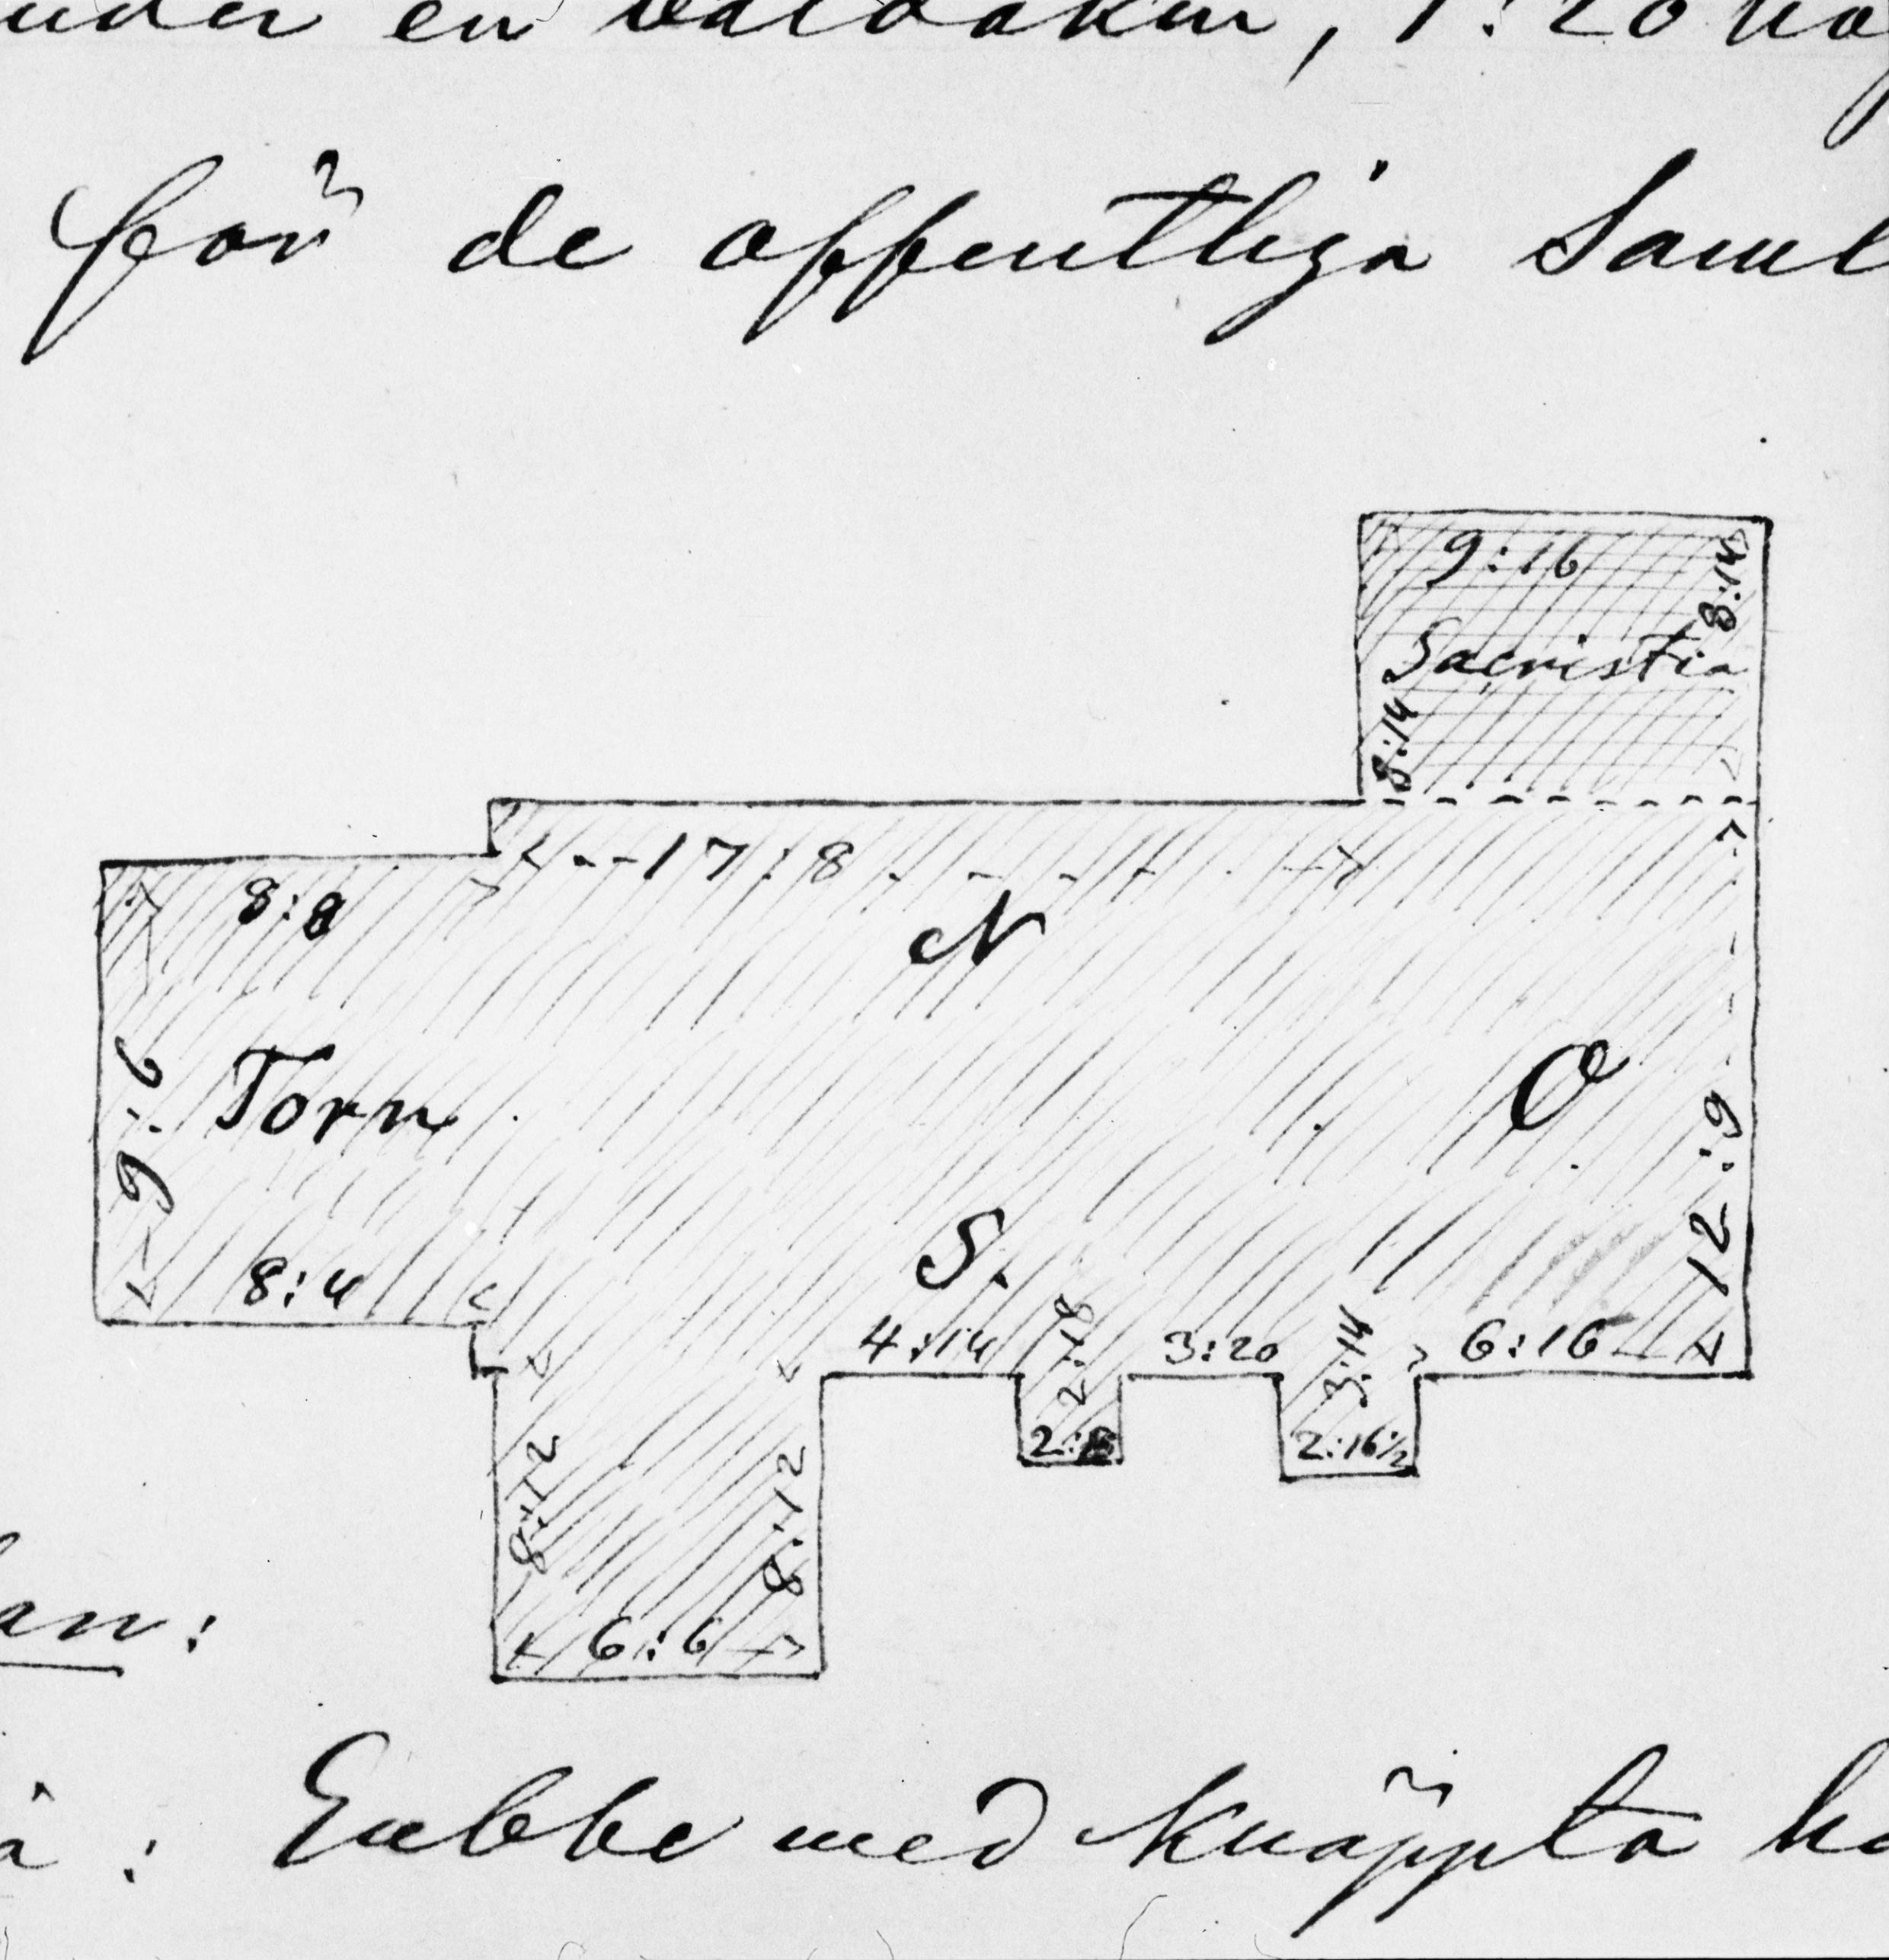 under en baldakin, 1:20 hög
för de offentliga Saml
9:16
8:14
Sacristia
8:14
17:8
8:8
N
9:6
Torn
O
12:9
S.
8:4
4:14
2:18
3:20
3:14
6:16
2:16½
8:12
8:12
6:6
an:
a: Gubbe med knäppta hä